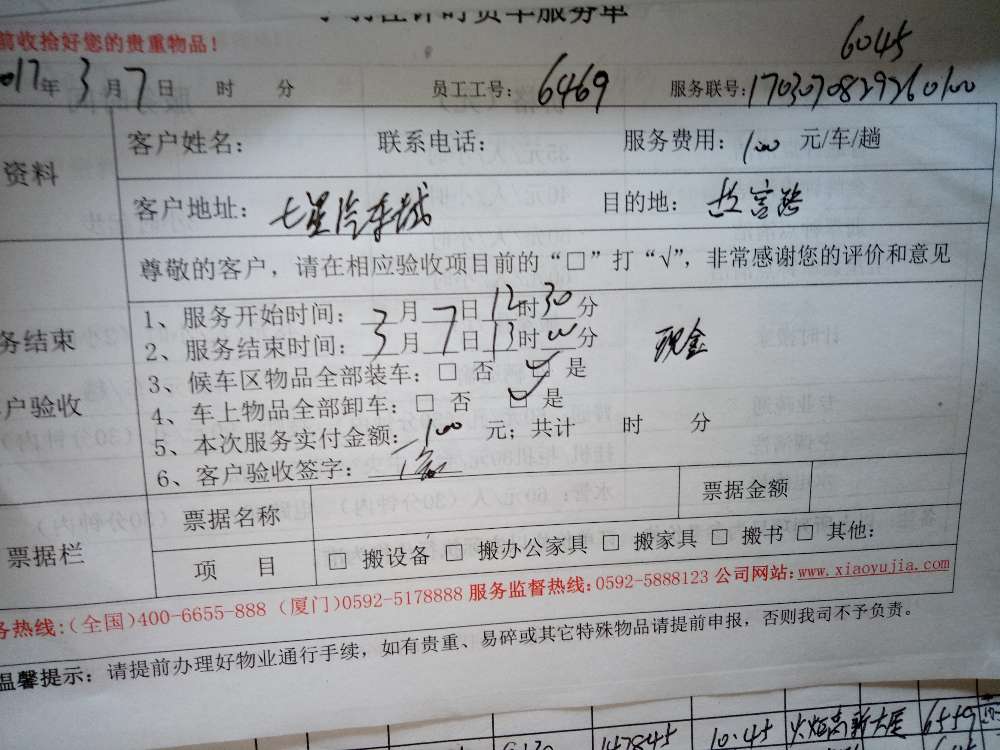 时货车服务单
前收拾好您的贵重物品！
6045
2017年 3月7日 时 分 员工工号：6469 服务联号：1703070829260100
资料
客户姓名： 联系电话： 服务费用：100 元/车/趟
客户地址：七星汽车城 目的地：
尊敬的客户，请在相应验收项目前的“□”打“√”，非常感谢您的评价和意见
务结束
户验收
1、服务开始时间：3月7日12时30分
2、服务结束时间：3月7日13时00分
现金
3、候车区物品全部装车：□ 否 ☑ 是
4、车上物品全部卸车：□ 否 ☑ 是
5、本次服务实付金额：100 元；共计 时 分
6、客户验收签字：
票据栏
票据名称 票据金额
项 目 □ 搬设备 □ 搬办公家具 □ 搬家具 □ 搬书 □ 其他：
务热线：(全国)400-6655-888 (厦门)0592-5178888 服务监督热线：0592-5888123 公司网站：www.xiaoyujia.com
温馨提示：请提前办理好物业通行手续，如有贵重、易碎或其它特殊物品请提前申报，否则我司不予负责。
147845 10.45 火炬高新大厦 6559